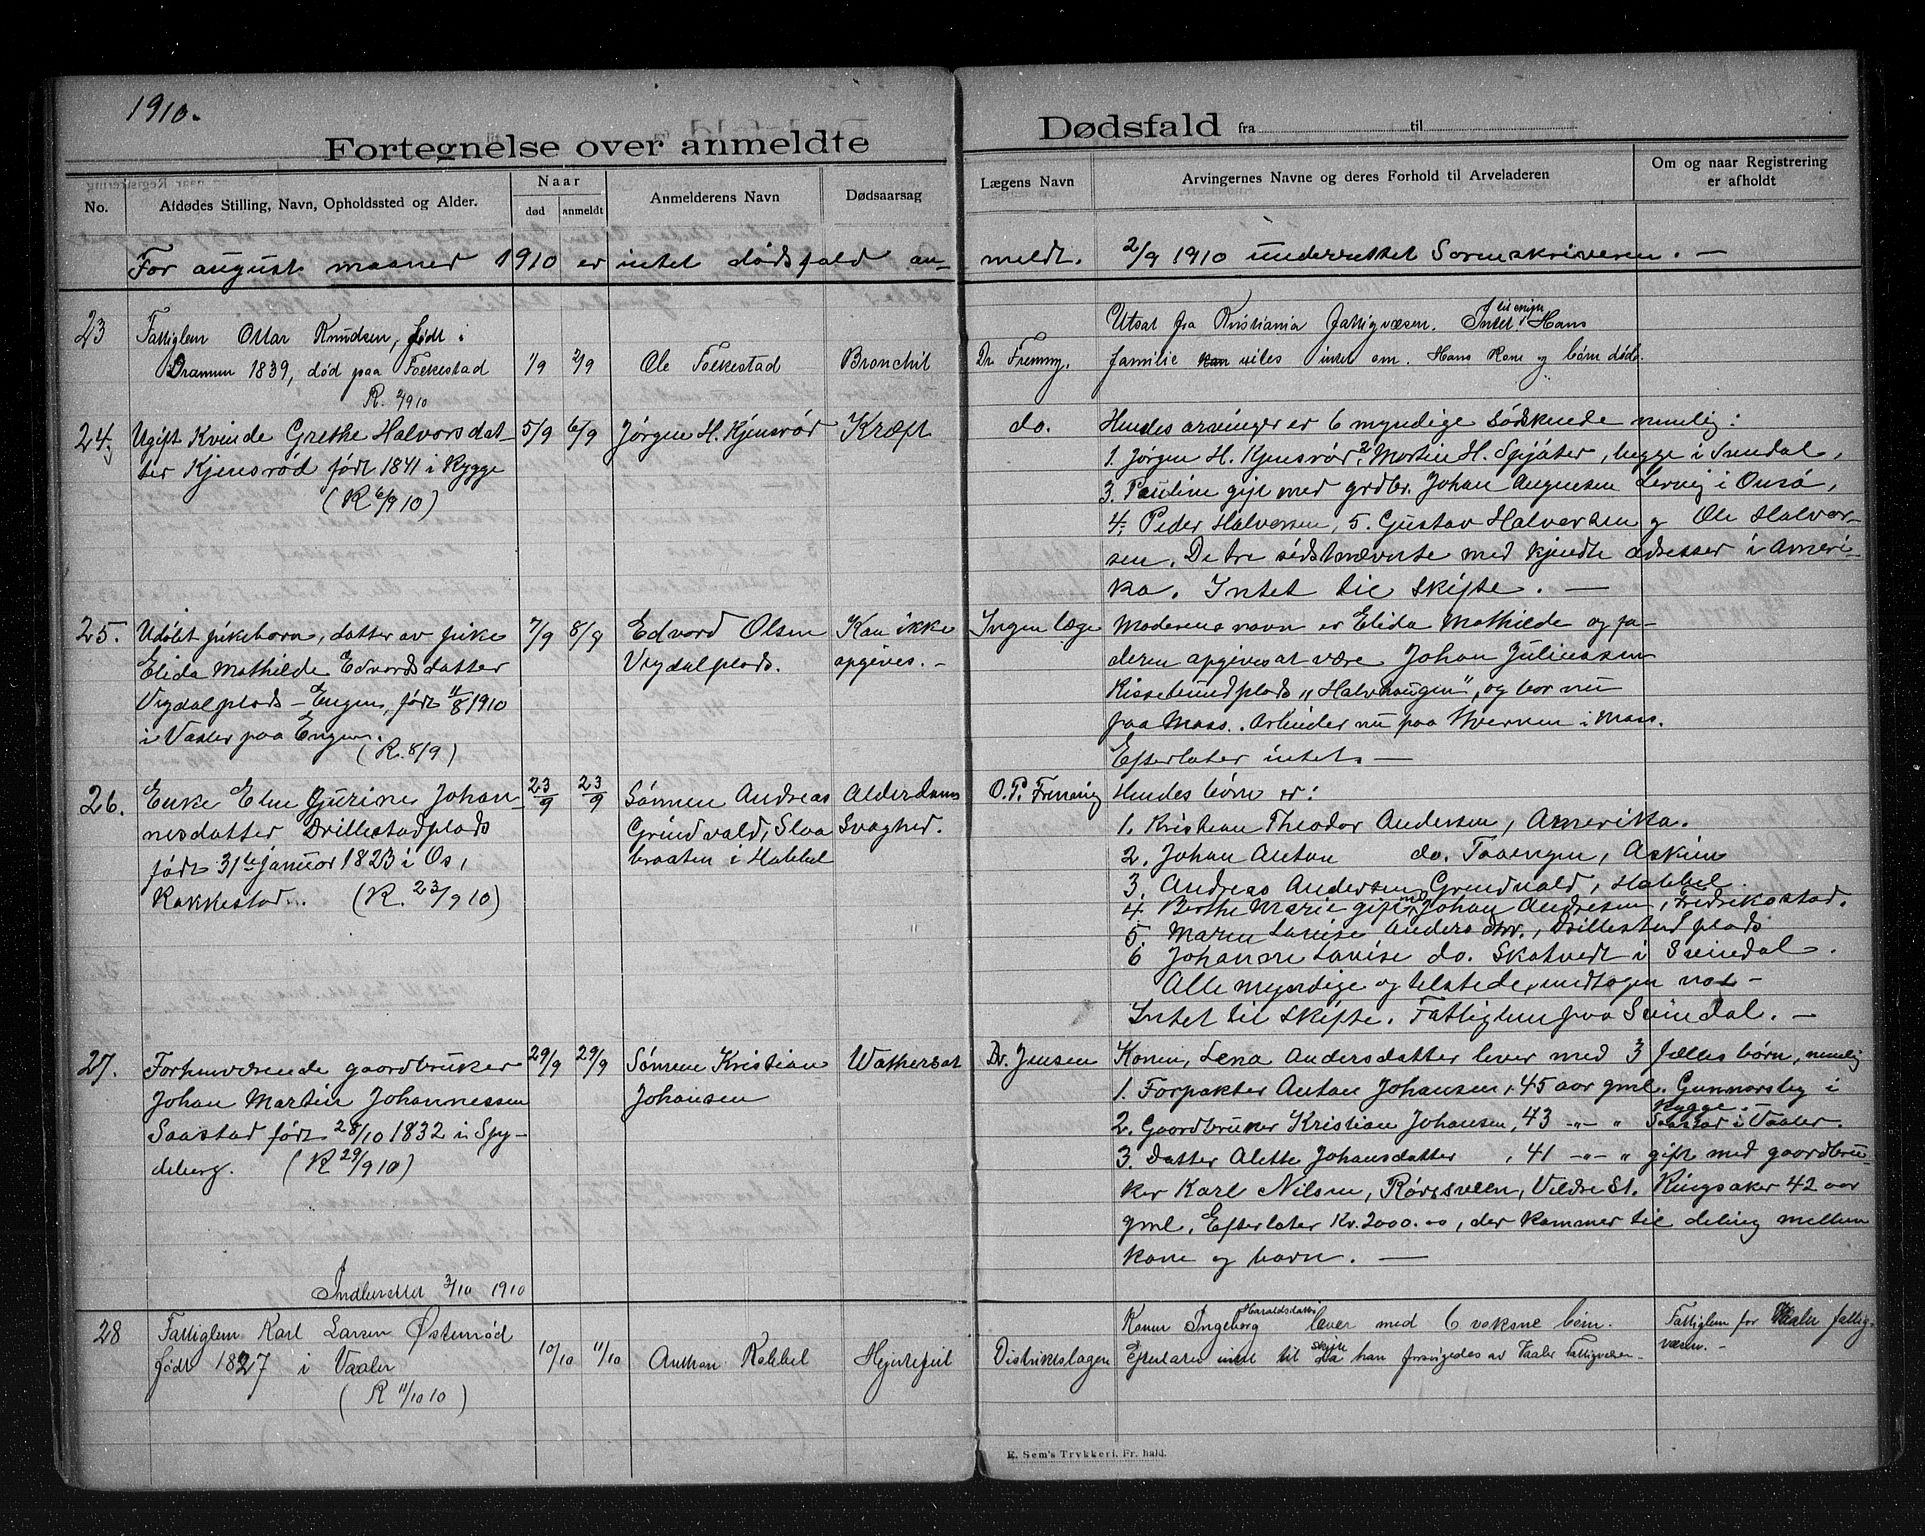 1910.
Fortegnelse over anmeldte Dødsfald fra til
No.
Afdødes Stilling, Navn, Opholdssted og Alder.
Naar
død anmeldt
Anmelderens Navn
Dødsaarsag
Lægens Navn
Arvingernes Navne og deres Forhold til Arveladeren
Om og naar Registrering
er afholdt
For august maaned 1910 er intet dødsfald an-
meldt. 2/9 1910 underrettet Sorenskriveren. —
23
Fattiglem Ottar Knudsen, født i
Dramen 1839, død paa Folkestad
R. 2/9 10
1/9 2/9
Ole Folkestad
Bronchit
Dr. Frenning.
Utsat fra Kristiania Fattigvæsen. Intet til skifte Hans
familie vites intet om. Hans Kone og børn døde.
24.
Ugift Kvinde Grethe Halvorsdat-
ter Kjensrød født 1841 i Rygge
(R 6/9 10)
5/9 6/9
Jørgen H. Kjensrød
Kræft
do.
Hendes arvinger er 6 myndige sødskende nemlig:
1. Jørgen H. Kjensrød, 2 Martin H. , begge i Svindal,
3. Pauline gift med grdbr. Johan Augusen Lervig i Onsø,
4. Peder Halvorsen, 5. Gustav Halvorsen og Ole Halvor-
sen. De tre sidstnævnte med kjendte adresser i Ameri-
ka. Intet til skifte. —
25.
Udøbt pikebarn, datter av pike
Elida Mathilde Edvardsdatter
Vigdalplads - Engen, født 11/8 1910
i Vaaler paa Engen.
(R. 8/9)
7/9 8/9
Edvard Olsen
Vigdalplads.
Kan ikke
opgives. —
Ingen læge
Moderens navn er Elida Mathilde og fa-
deren opgives at være Johan Juliussen
Kissebundplads „Halvhaugen", og bor nu
paa Moss. Arbeider nu paa Kvernen i Moss.
Efterlater intet. —
26.
Enke Elen Gurine Johan
nesdatter Drillestadplads
født 31te januar 1823 i Os,
Rakkestad. (R. 23/9 10)
23/9 23/9
Sønnen Andreas
Grindvald, Slaa
braaten i Habbel
Alderdoms
Svaghed.
O.P. Frenning
Hendes børn er:
1. Kristian Theodor Andersen, Amerika.
2. Johan Anton do. Taaengen, Askim
3. Andreas Andersen Grindvald, Habbel.
4 Berthe Marie gift med Johan Andresen, Fredrikstad.
5 Maren Lovise Andersdtr., Drillestad plads
6 Johanne Lovise do. Skatvedt i Svindal.
Alle myndige og tilstede, undtagen no 1 —
Intet til skifte. Fattiglem paa Svindal. —
27.
Forhenværende gaardbruker
Johan Martin Johannessen
Saastad født 28/10 1832 i Spy-
deberg. (R 29/9 10)
29/9 29/9
Sønnen Kristian
Johansen
Wathersot
Dr. Jensen
Konen, Lena Andersdatter lever med 3 fælles børn, nemlig
1. Forpakter Anton Johansen, 45 aar gml. Gunnarsby i
Rygge.
2. Gaardbruker Kristian Johansen, 43 -„- „ Saastad i Vaaler.
3. Datter Alette Johansdatter, 41 -„- „ gift med gaardbru-
ker Karl Nilsen, Rørsveen, Veldre St. Ringsaker 42 aar
gml. Efterlater Kr. 2000.00, der kommer til deling mellem
kone og barn. —
Indberettet 3/10 1910
28
Fattiglem Karl Larsen Østenrød
født 1827 i Vaaler
(R 11/10 10)
10/10 11/10
Anthon Rabbel
Hjertefeil
Distriktslægen
Konen Ingeborg Haraldsdatter lever med 6 voksne børn.
Efterlater intet til skifte Da han forsørgedes av Vaaler Fattigvæsen-
Fattiglem for Vaaler fattig-
væsen. —
E. Sem's Trykkeri. Fr.hald.